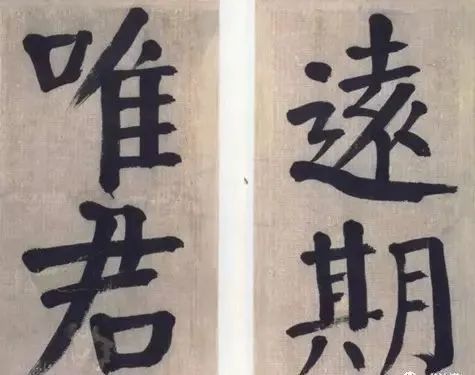 遠期
唯君